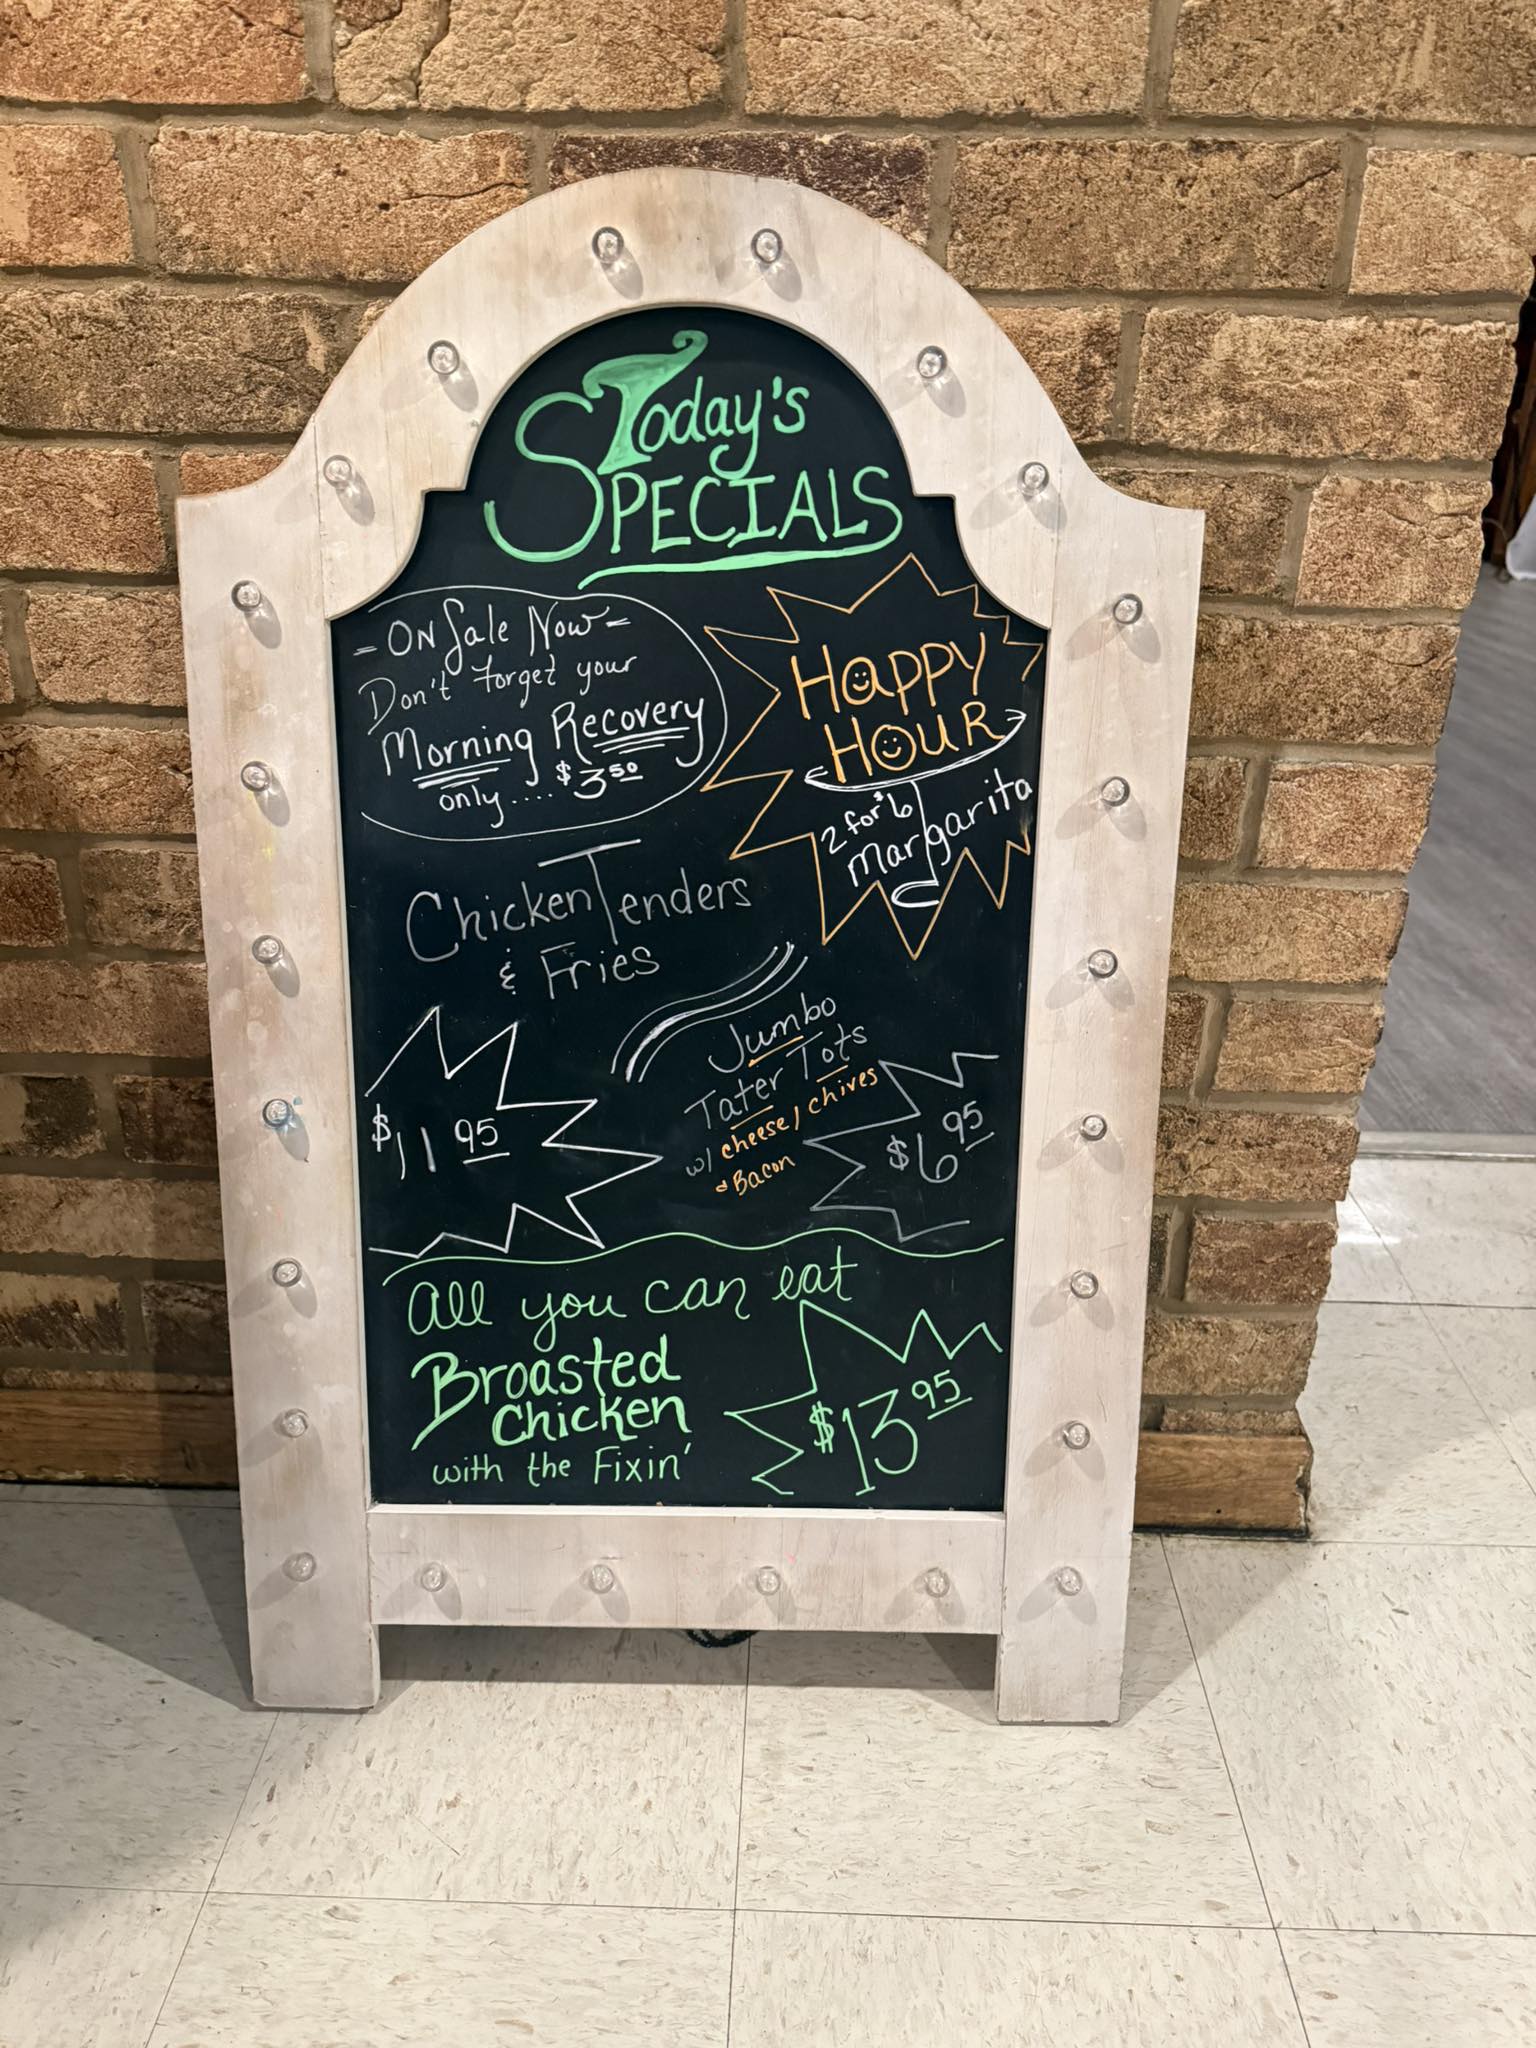 Today's
SPECIALS
= ON Sale Now =
Don't forget your
Morning Recovery
only ..... $3.50
HAPPY
HOUR
2 for $6
Margarita
Chicken Tenders
& Fries
$11.95
Jumbo
Tater Tots
w/ cheese / chives
& Bacon
$6.95
All you can eat
Broasted
Chicken
with the Fixin'
$13.95